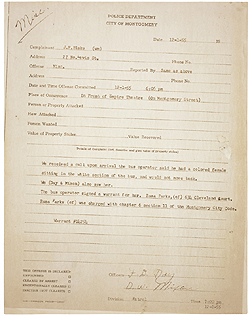 Misc
POLICE DEPARTMENT
CITY OF MONTGOMERY
Date 12-1-55 19
Complainant J.F. Blake (wm)
Address 27 No. Lewis St. Phone No.
Offense Misc. Reported By Same as above
Address Phone No.
Date and Time Offense Committed 12-1-55 6:06 pm
Place of Occurrence In Front of Empire Theatre (On Montgomery Street)
Person or Property Attacked
How Attacked
Person Wanted
Value of Property Stolen Value Recovered
Details of Complaint (list, describe and give value of property stolen)
We received a call upon arrival the bus operator said he had a colored female
sitting in the white section of the bus, and would not move back.
We (Day & Mixon) also saw her.
The bus operator signed a warrant for her. Rosa Parks, (cf) 634 Cleveland Court.
Rosa Parks (cf) was charged with chapter 6 section 11 of the Montgomery City Code.
Warrant
THIS OFFENSE IS DECLARED:
UNFOUNDED
CLEARED BY ARREST
EXCEPTIONALLY CLEARED
INACTIVE (NOT CLEARED)
Officers F. B. Day
D. W. Mixon
Division Patrol
Time 7:00 pm
12-1-55